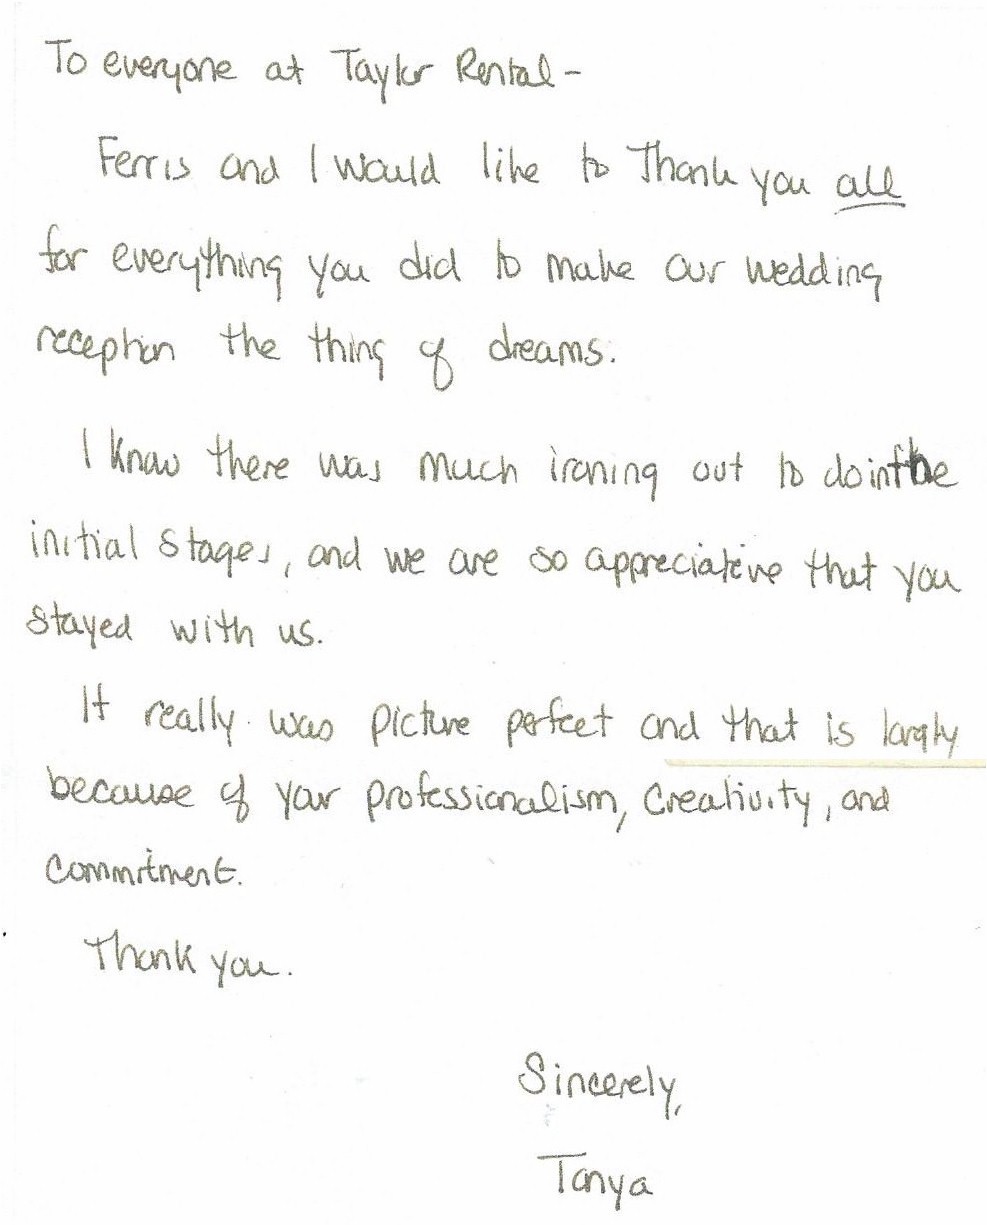 To everyone at Taylor Rental -
Ferris and I would like to Thank you all
for everything you did to make our wedding
reception the thing of dreams.
I know there was much ironing out to do in the
initial stages, and we are so appreciative that you
stayed with us.
It really was picture perfect and that is largly
because of your professionalism, creativity, and
commitment.
Thank you.
Sincerely,
Tanya